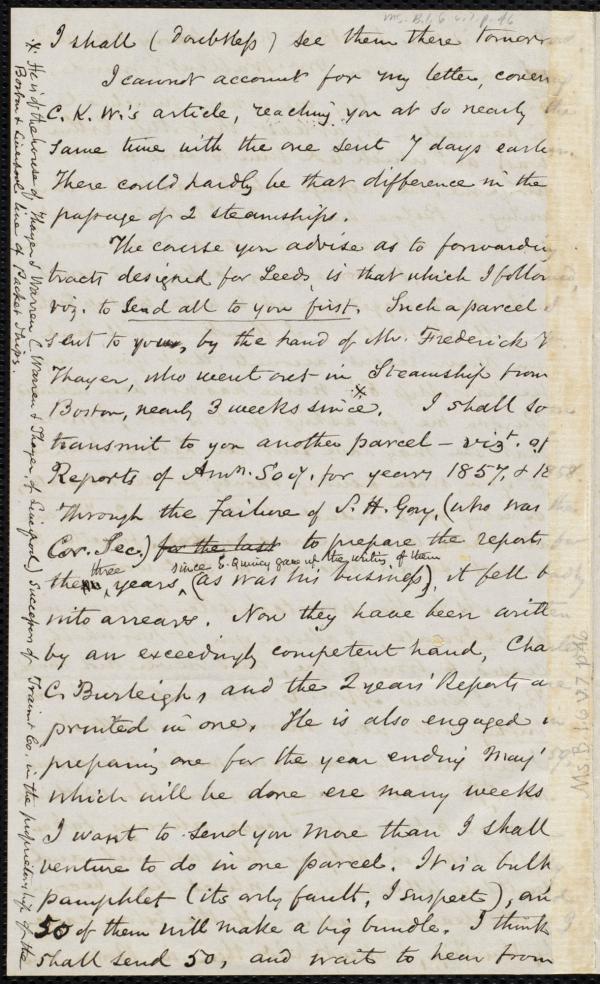 Ms. B. 1. 6 v. 7, p. 46
I shall (doubtless) see them there tomorro
I cannot account for my letter, cover
C. K. W.'s article, reaching you at so nearly the
same time with the one sent 7 days earlier.
There could hardly be that difference in the
passage of 2 steamships.
The course you advise as to forwarding
tracts designed for Leeds, is that which I followed,
viz. to send all to you first. Such a parcel I
sent to you, by the hand of Mr. Frederick
Thayer, who went out in Steamship from
Boston, nearly 3 weeks since.* I shall so
transmit to you another parcel – vizt. of
Reports of Amn. Socy. for years 1857, & 1858.
Through the failure of S. H. Gay, (who was the
Cor. Sec.) for the last to prepare the reports for
three since E. Quincy gave up the writing of them
the years, (as was his business), it fell badly
into arrears. Now they have been written
by an exceedingly competent hand, Charles
C. Burleigh, and the 2 years' Reports are
printed in one. He is also engaged in
preparing one for the year ending May '59,
which will be done ere many weeks
I want to send you more than I shall
venture to do in one parcel. It is a bulky
pamphlet (its only fault, I suspect), and
50 of them will make a big bundle. I think I
shall send 50, and wait to hear from
* He is of the house of Thayer & Warren (Warren & Thayer, of Liverpool) Successors of Train & Co. in the proprietorship of the
Boston & Liverpool line of Packet Ships.
Ms. B. 1. 6 v. 7, p. 46